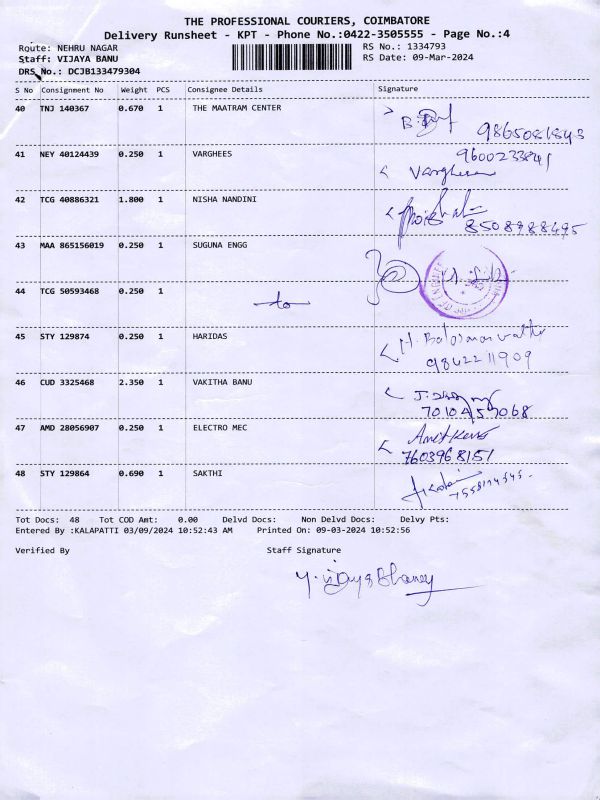 THE PROFESSIONAL COURIERS, COIMBATORE
Delivery Runsheet - KPT - Phone No.:0422-3505555 - Page No.:4
Route: NEHRU NAGAR RS No.: 1334793
Staff: VIJAYA BANU RS Date: 09-Mar-2024
DRS No.: DCJB133479304
S No Consignment No Weight PCS Consignee Details Signature
40 TNJ 140367 0.670 1 THE MAATRAM CENTER
9865081843
41 NEY 40124439 0.250 1 VARGHEES 9600233841
Varghese
42 TCG 40886321 1.800 1 NISHA NANDINI
8508988495
43 MAA 865156019 0.250 1 SUGUNA ENGG
44 TCG 50593468 0.250 1
to
45 STY 129874 0.250 1 HARIDAS
9842211909
46 CUD 3325468 2.350 1 VAKITHA BANU
47 AMD 28056907 0.250 1 ELECTRO MEC
7603968151
48 STY 129864 0.690 1 SAKTHI
Tot Docs: 48 Tot COD Amt: 0.00 Delvd Docs: Non Delvd Docs: Delvy Pts:
Entered By :KALAPATTI 03/09/2024 10:52:43 AM Printed On: 09-03-2024 10:52:56
Verified By Staff Signature